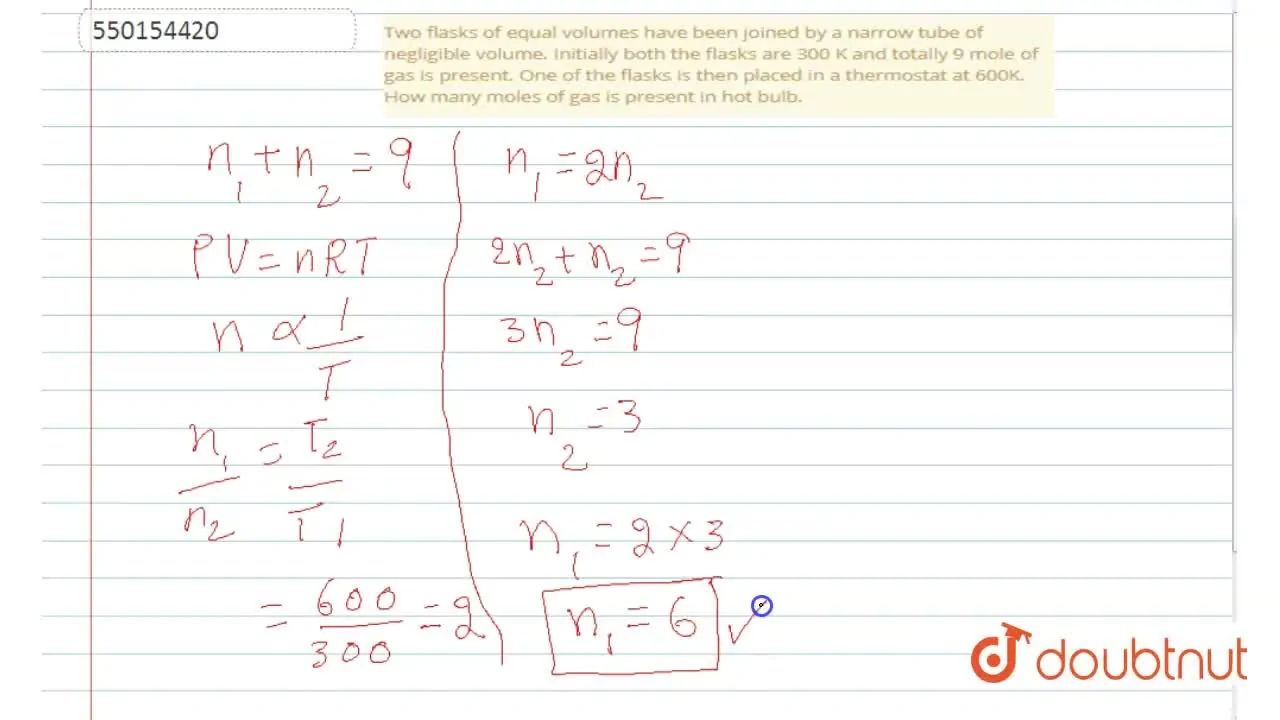 550154420
Two flasks of equal volumes have been joined by a narrow tube of
negligible volume. Initially both the flasks are 300 K and totally 9 mole of
gas is present. One of the flasks is then placed in a thermostat at 600K.
How many moles of gas is present in hot bulb.
n₁ + n₂ = 9
PV = nRT
n ∝ 1/T
n₁/n₂ = T₂/T₁
= 600/300 = 2
n₁ = 2n₂
2n₂ + n₂ = 9
3n₂ = 9
n₂ = 3
n₁ = 2 × 3
n₁ = 6 ✓
doubtnut